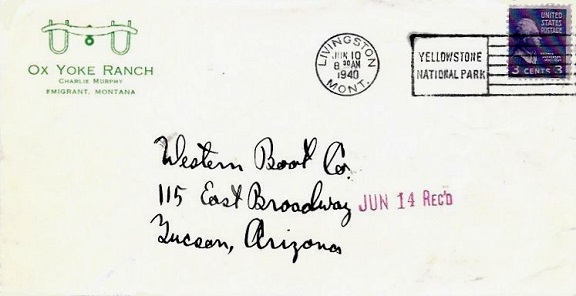 OX YOKE RANCH
CHARLIE MURPHY
EMIGRANT, MONTANA
LIVINGSTON
JUN 10
8 30 AM
1940
MONT.
YELLOWSTONE
NATIONAL PARK
UNITED
STATES
POSTAGE
3 CENTS 3
Western Boot Co.
115 East Broadway
JUN 14 REC'D
Tucson, Arizona